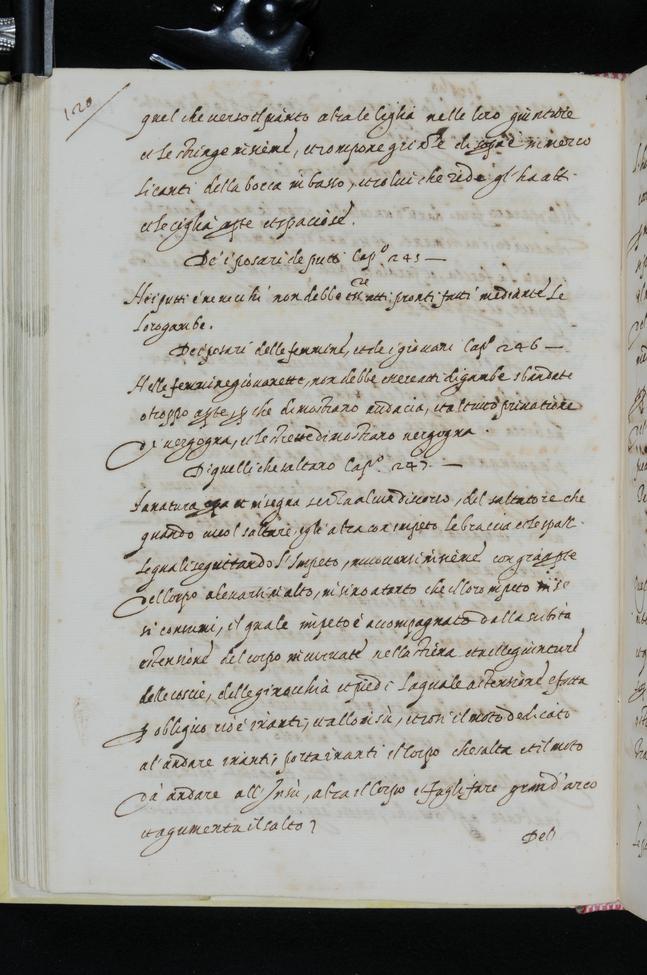 120
quel che verso il pianto alza le ciglia nelle loro giunture
et le stringe insieme, et compone grinze di sopra in mezzo
li canti della bocca in basso, et colui che ride gl'ha alti
et le ciglia apte et spaciose.
De' i posari de putti Cap.º 245 —
Ne i putti é ne vecchi non debbe ess.re atti pronti fatti mediante Le
Loro gambe.
De i posari delle femmine, et de i giovani Cap.º 246 —
Nelle femmine giovanette, non debbe essere atti di gambe sbandate
o troppo apte, p che dimostrano audacia, et al tutto privatione
di vergogna, et le strette dimostrano vergogna.
Di quelli che saltano Cap.º 247. —
La natura opa et insegna senza alcun discorso, del saltatore che
quando vuol saltare, egli alza con impeto le braccia et le spall.
le quali seguittando L'Impeto, muovonsi insieme con gran pte
del corpo a levarsi in alto, insino a tanto che il loro impeto in se
si consumi, il quale impeto é accompagnato dalla subita
estensione del corpo incurvate nella schiena et nelle giunture
delle coscie, delle ginocchia et piedi La quale astensione é fatta
p obliquo cioé inanti, et allo in sù, et cosi il moto dedicato
al andare inanti, porta inanti il corpo che salta et il moto
dà andare all'Insù, alza il Corpo et fagli fare grand'arco
et agumenta il salto
Dell